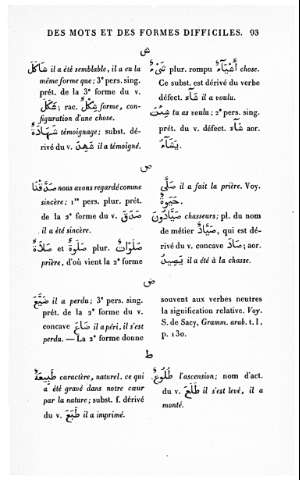 DES MOTS ET DES FORMES DIFFICILES. 93
ش
شَاكَلَ il a été semblable, il a eu la
même forme que; 3e pers. sing.
prét. de la 3e forme du v.
شَكَلَ; rac. شَكْلٌ forme, con-
figuration d'une chose.
شَهَادَةٌ témoignage; subst. dé-
rivé du v. شَهِدَ il a témoigné.
شَيْءٌ plur. rompu أَشْيَآءُ chose.
Ce subst. est dérivé du verbe
défect. شَآءَ il a voulu.
شِئْتَ tu as voulu; 2e pers. sing.
prét. du v. défect. شَآءَ aor.
يَشَآءُ.
ص
صَدَّقْنَا nous avons regardé comme
sincère; 1re pers. plur. prét.
de la 2e forme du v. صَدَقَ
il a été sincère.
صَلَاةٌ et صَلْوةٌ plur. صَلَوَاتٌ
prière, d'où vient la 2e forme
صَلَّى il a fait la prière. Voy.
حَيْوةٌ.
صَيَّادُونَ chasseurs; pl. du nom
de métier صَيَّادٌ, qui est dé-
rivé du v. concave صَادَ; aor.
يَصِيدُ il a été à la chasse.
ض
ضَيَّعَ il a perdu; 3e pers. sing.
prét. de la 2e forme du v.
concave ضَاعَ il a péri, il s'est
perdu. — La 2e forme donne
souvent aux verbes neutres
la signification relative. Voy.
S. de Sacy, Gramm. arab. t. I,
p. 130.
ط
طَبِيعَةٌ caractère, naturel, ce qui
a été gravé dans notre cœur
par la nature; subst. f. dérivé
du v. طَبَعَ il a imprimé.
طُلُوعٌ l'ascension; nom d'act.
du v. طَلَعَ il s'est levé, il a
monté.